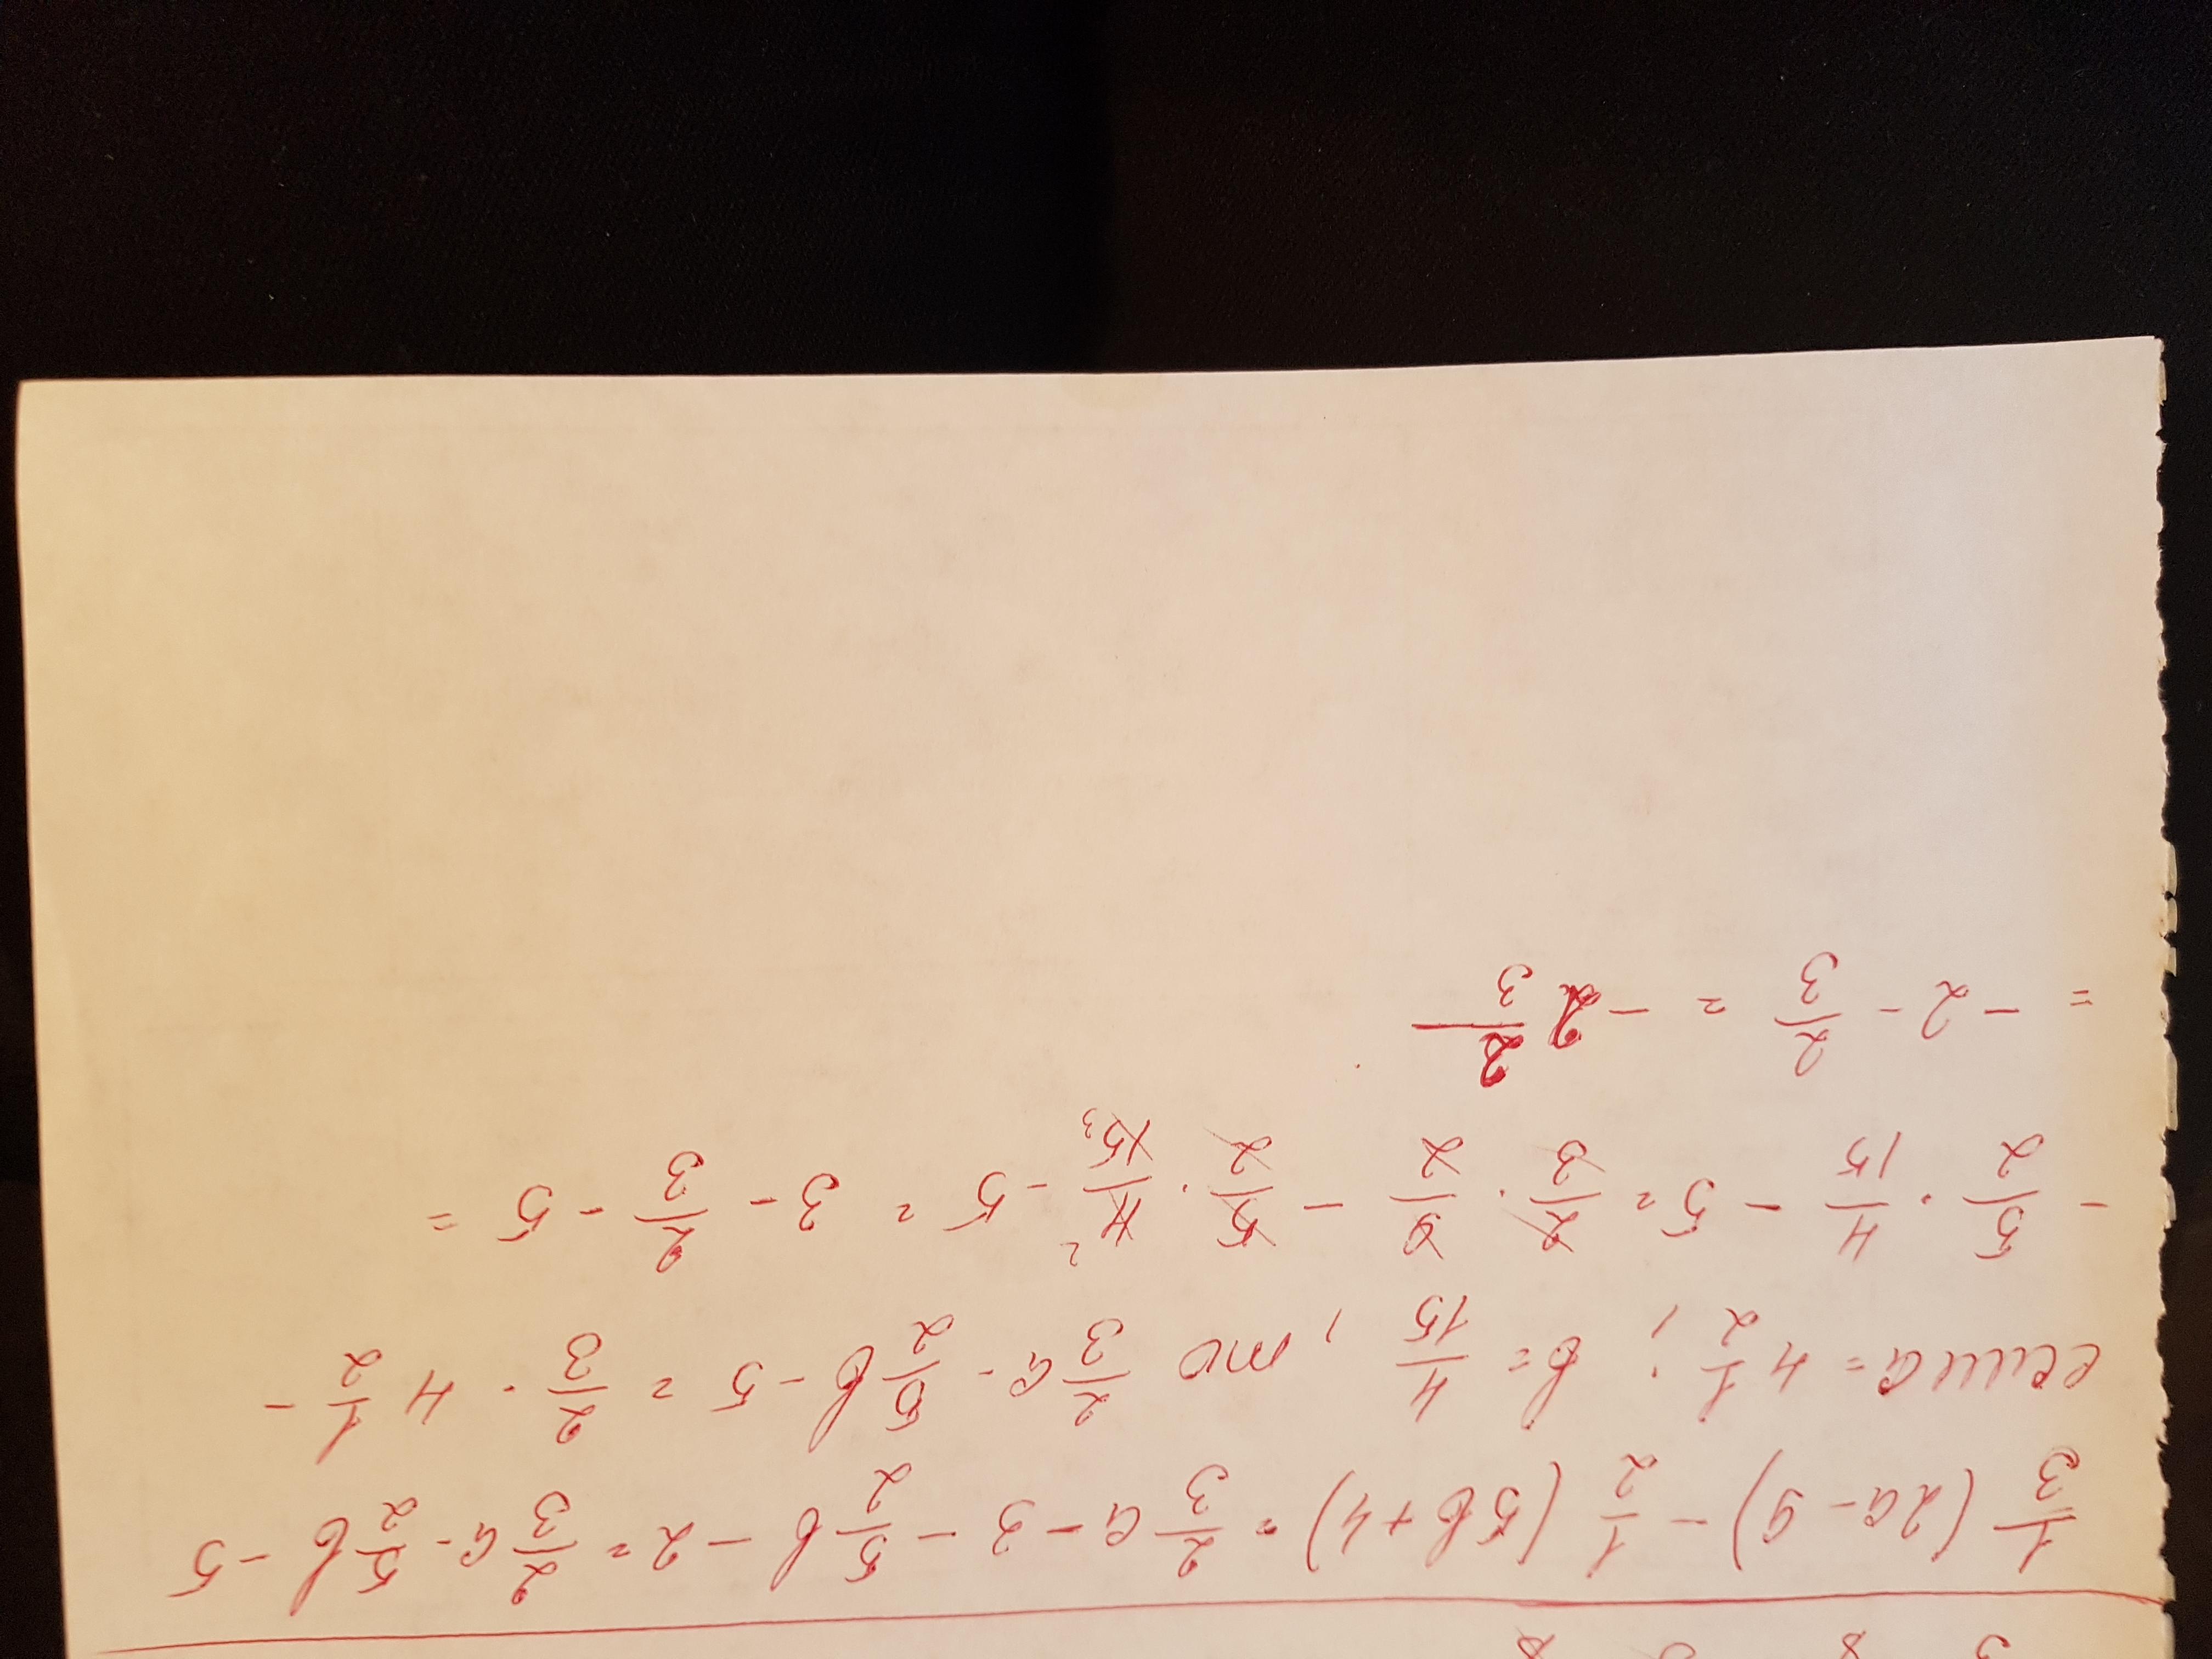 1/3 (2a - 9) - 1/2 (5b + 4) = 2/3 a - 3 - 5/2 b - 2 = 2/3 a - 5/2 b - 5
если a = 4 1/2; b = 4/15, то 2/3 a - 5/2 b - 5 = 2/3 · 4 1/2 -
- 5/2 · 4/15 - 5 = 2/3 · 9/2 - 5/2 · 4/15 - 5 = 3 - 2/3 - 5 =
= - 2 - 2/3 = - 2 2/3